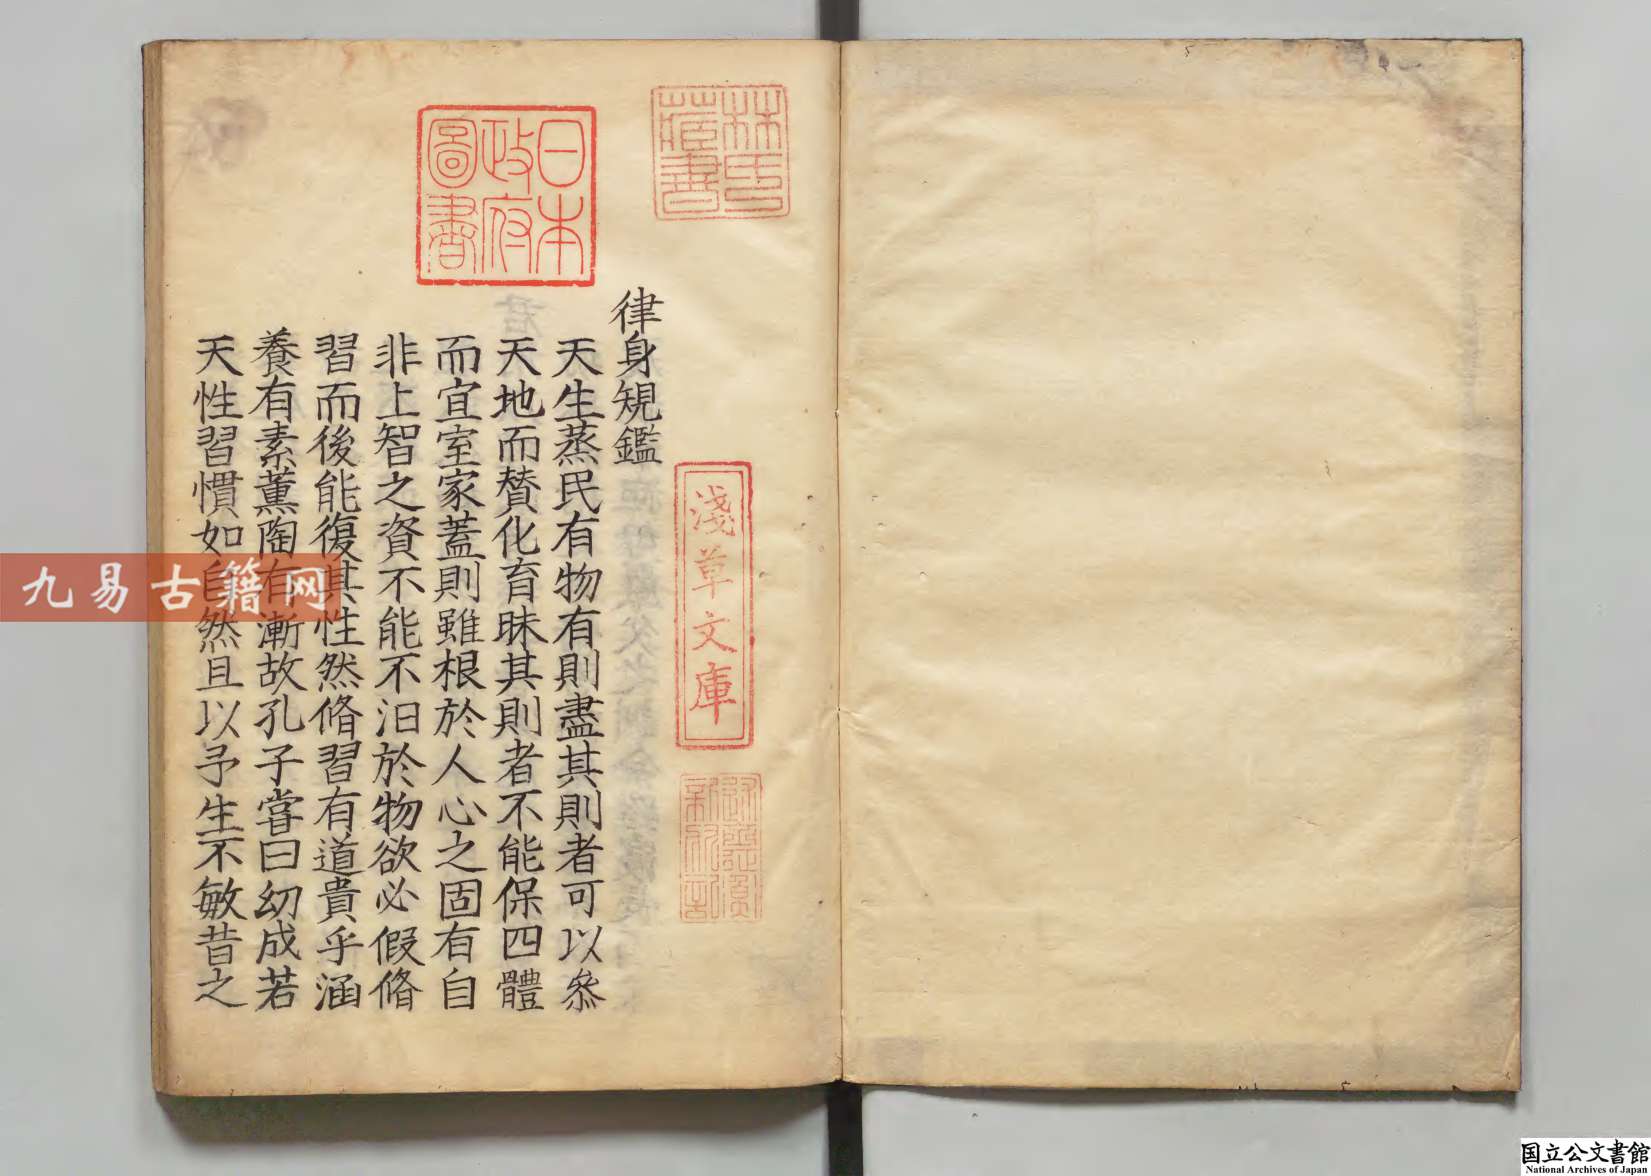 律身規鑑
天生蒸民有物有則盡其則者可以叅
天地而賛化育昧其則者不能保四體
而宜室家蓋則雖根於人心之固有自
非上智之資不能不汩於物欲必假脩
習而後能復其性然脩習有道貴乎涵
養有素薫陶有漸故孔子嘗曰幼成若
天性習慣如自然且以予生不敏昔之
林氏藏書
日本政府圖書
淺草文庫
九易古籍网
国立公文書館
National Archives of Japan